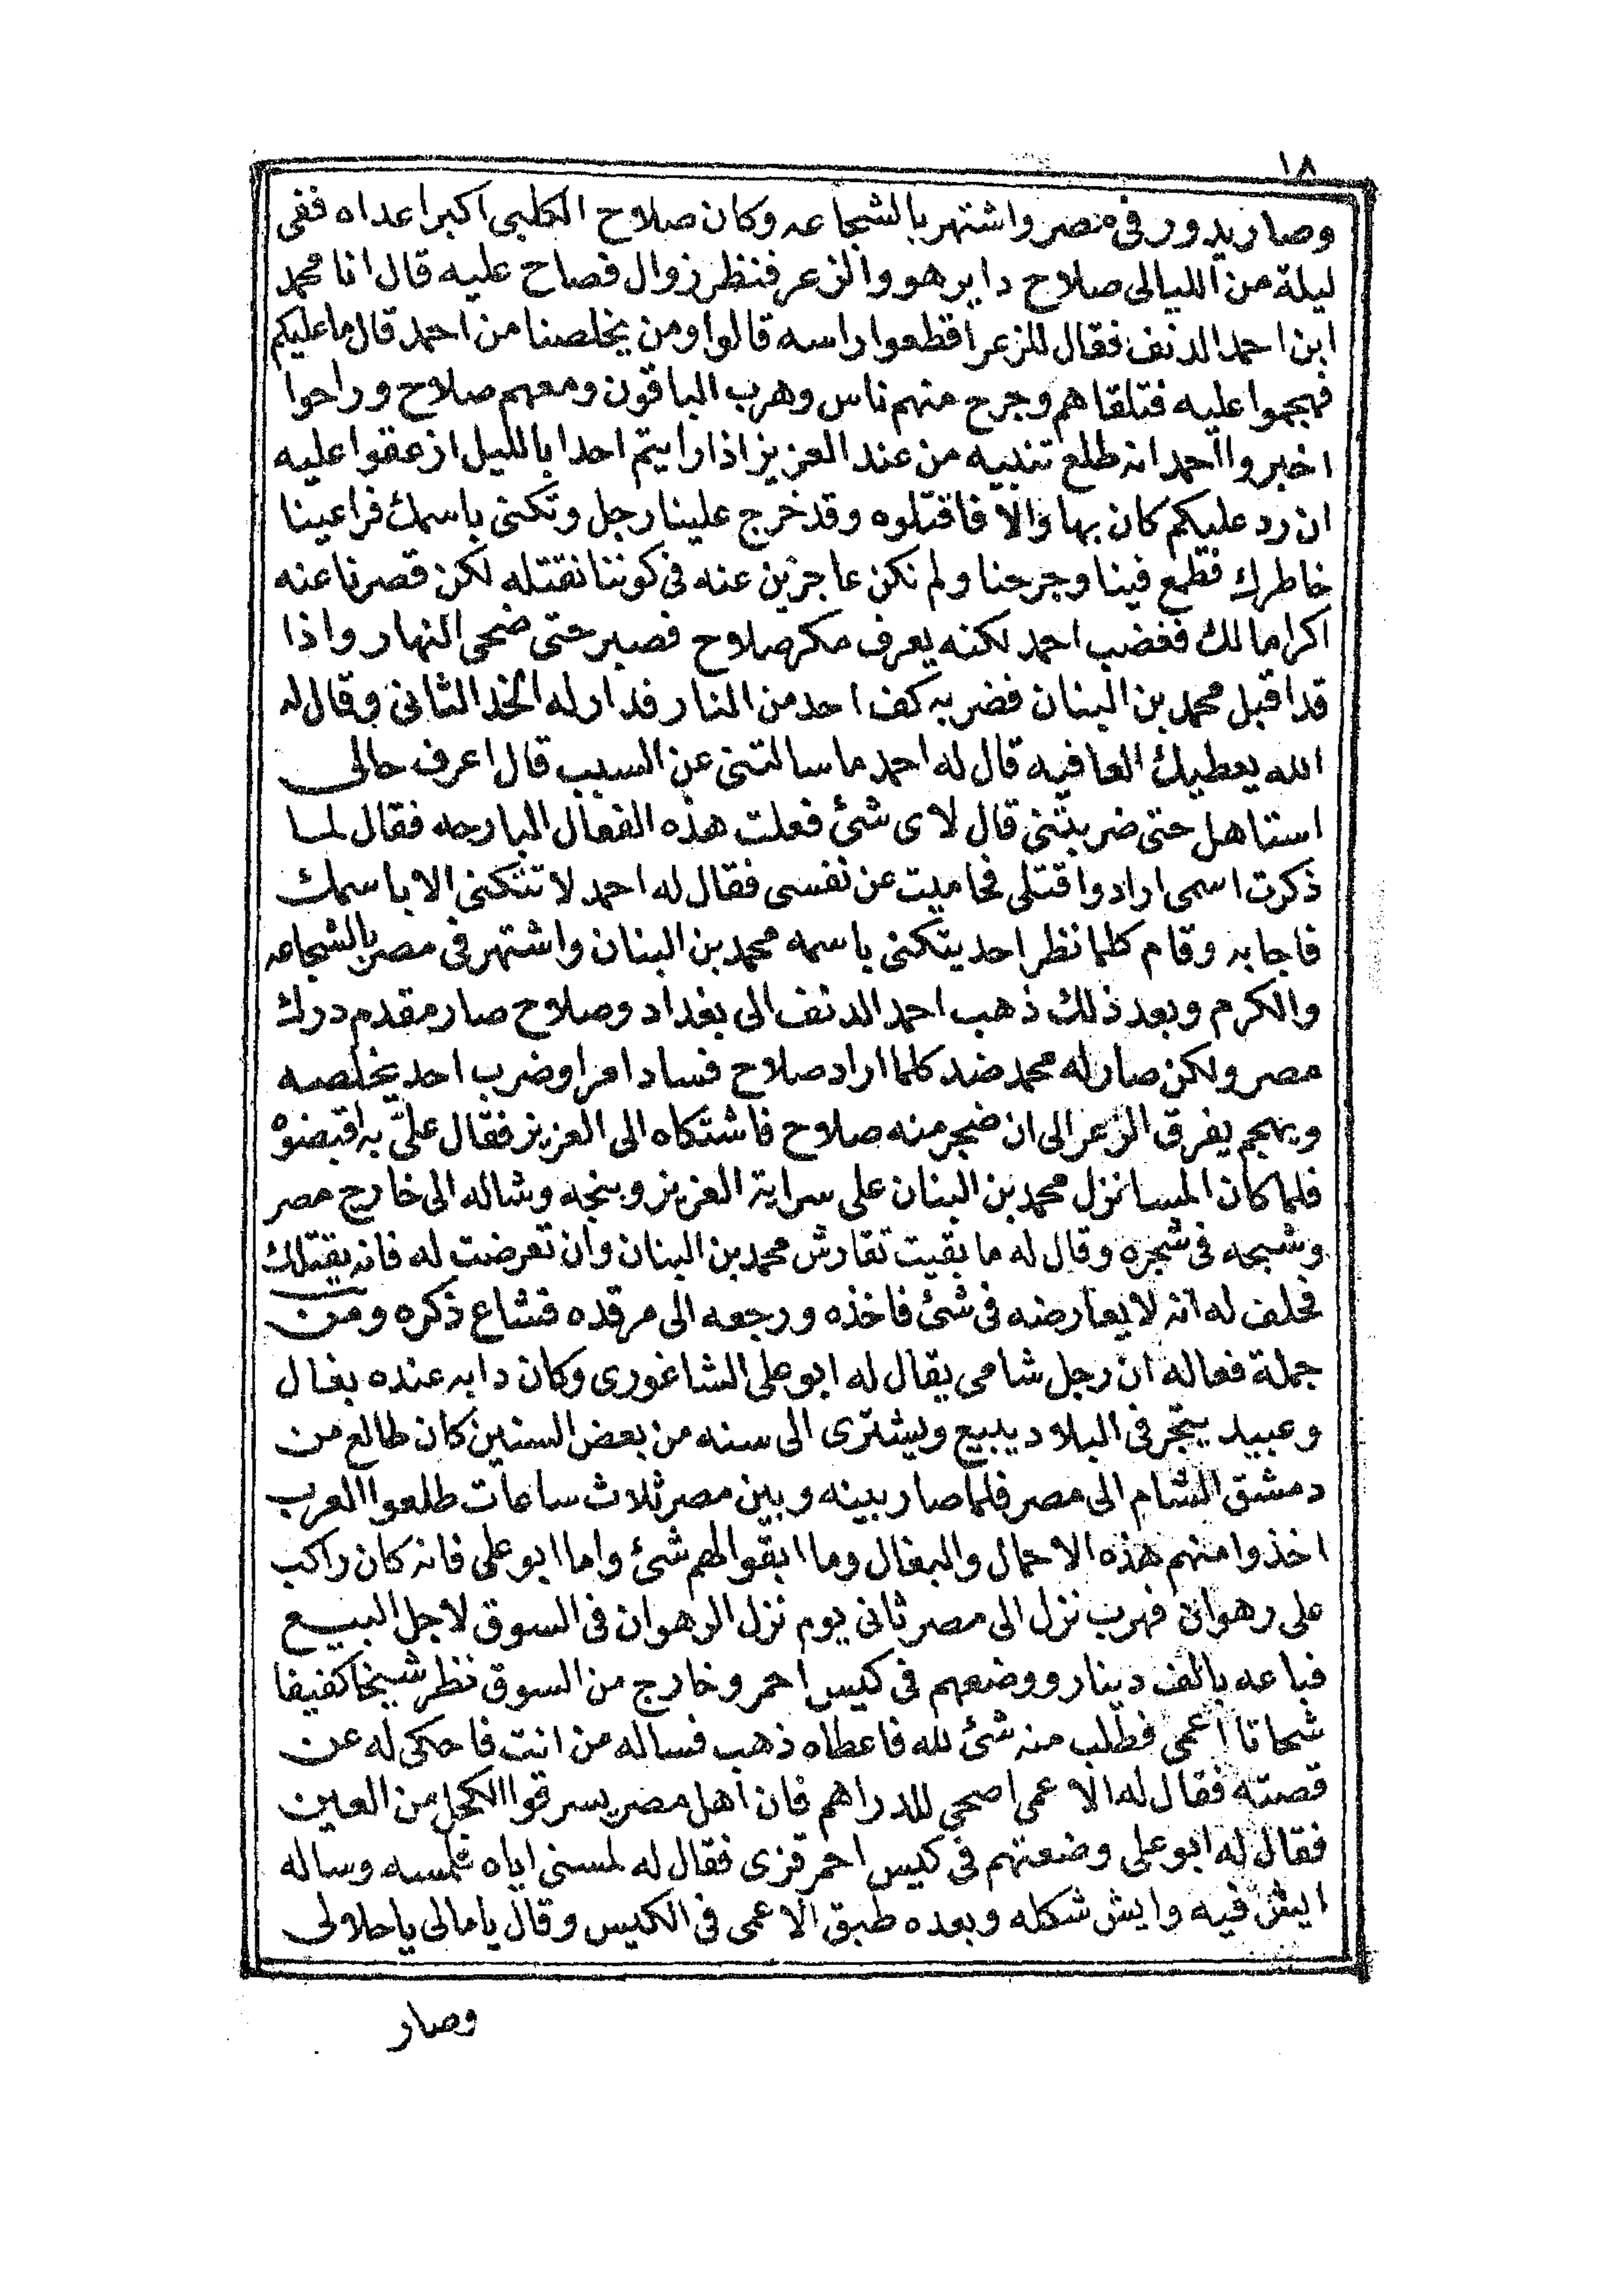 ١٨
وصار يدور فى مصر واشتهر بالشجاعه وكان صلاح الكلبى اكبر اعداه ففى
ليلة من الليالى صلاح داير هو والزعر فنظر زوال فصاح عليه قال انا محمد
ابن احمد الدنف فقال للزعر اقطعوا راسه قالوا ومن يخلصنا من احمد قال ما عليكم
فهجموا عليه فتلقاهم وجرح منهم ناس وهرب الباقون ومعهم صلاح وراحوا
اخبروا احمد انه طلع تنبيه من عند العزيز اذا رايتم احدا بالليل ازعقوا عليه
ان رد عليكم كان بها والا فاقتلوه وقد خرج علينا رجل وتكنى باسمك فراعينا
خاطرك فطمع فينا وجرحنا ولم نكن عاجزين عنه فى كوننا نقتله لكن قصرنا عنه
اكراما لك فغضب احمد لكنه يعرف مكر صلاح فصبر حتى ضحى النهار واذا
قد اقبل محمد بن البنان فضربه كف احد من النار فدار له الخد الثانى وقال له
الله يعطيك العافيه قال له احمد ما سالتنى عن السبب قال اعرف حالى
استاهل حتى ضربتنى قال لاى شئ فعلت هذه الفعال البارحه فقال لما
ذكرت اسمى ارادوا قتلى فحاميت عن نفسى فقال له احمد لا تتكنى الا باسمك
فاجابه وقام كلما نظر احد يتكنى باسمه محمد بن البنان واشتهر فى مصر بالشجاعه
والكرم وبعد ذلك ذهب احمد الدنف الى بغداد وصلاح صار مقدم درك
مصر ولكن صار له محمد ضد كلما اراد صلاح فساد امر او ضرب احد يخلصه
ويهجم يفرق الزعر الى ان ضجر منه صلاح فاشتكاه الى العزيز فقال علىّ به اقبضوه
فلما كان المسا نزل محمد بن البنان على سراية العزيز وبنجه وشاله الى خارج مصر
وشبحه فى شجره وقال له ما بقيت تقارش محمد بن البنان وان تعرضت له فانه يقتلك
فحلف له انه لا يعارضه فى شئ فاخذه ورجعه الى مرقده فشاع ذكره ومن
جملة فعاله ان رجل شامى يقال له ابو على الشاغورى وكان دابه عنده بغال
وعبيد يتجر فى البلاد يبيع ويشترى الى سنه من بعض السنين كان طالع من
دمشق الشام الى مصر فلما صار بينه وبين مصر ثلاث ساعات طلعوا العرب
اخذوا منهم هذه الاحمال والبغال وما ابقوا لهم شئ واما ابو على فانه كان راكب
على رهوان فهرب نزل الى مصر ثانى يوم نزل الرهوان فى السوق لاجل البيع
فباعه بالف دينار ووضعهم فى كيس احمر وخارج من السوق نظر شيخا كفيفا
شحاتا اعمى فطلب منه شئ لله فاعطاه ذهب فساله من انت فاحكى له عن
قصته فقال له الاعمى اصحى للدراهم فان اهل مصر يسرقوا الكحل من العين
فقال له ابو على وضعتهم فى كيس احمر قزى فقال له لمسنى اياه فلمسه وساله
ايش فيه وايش شكله وبعده طبق الاعمى فى الكيس وقال يا مالى يا حلالى
وصار